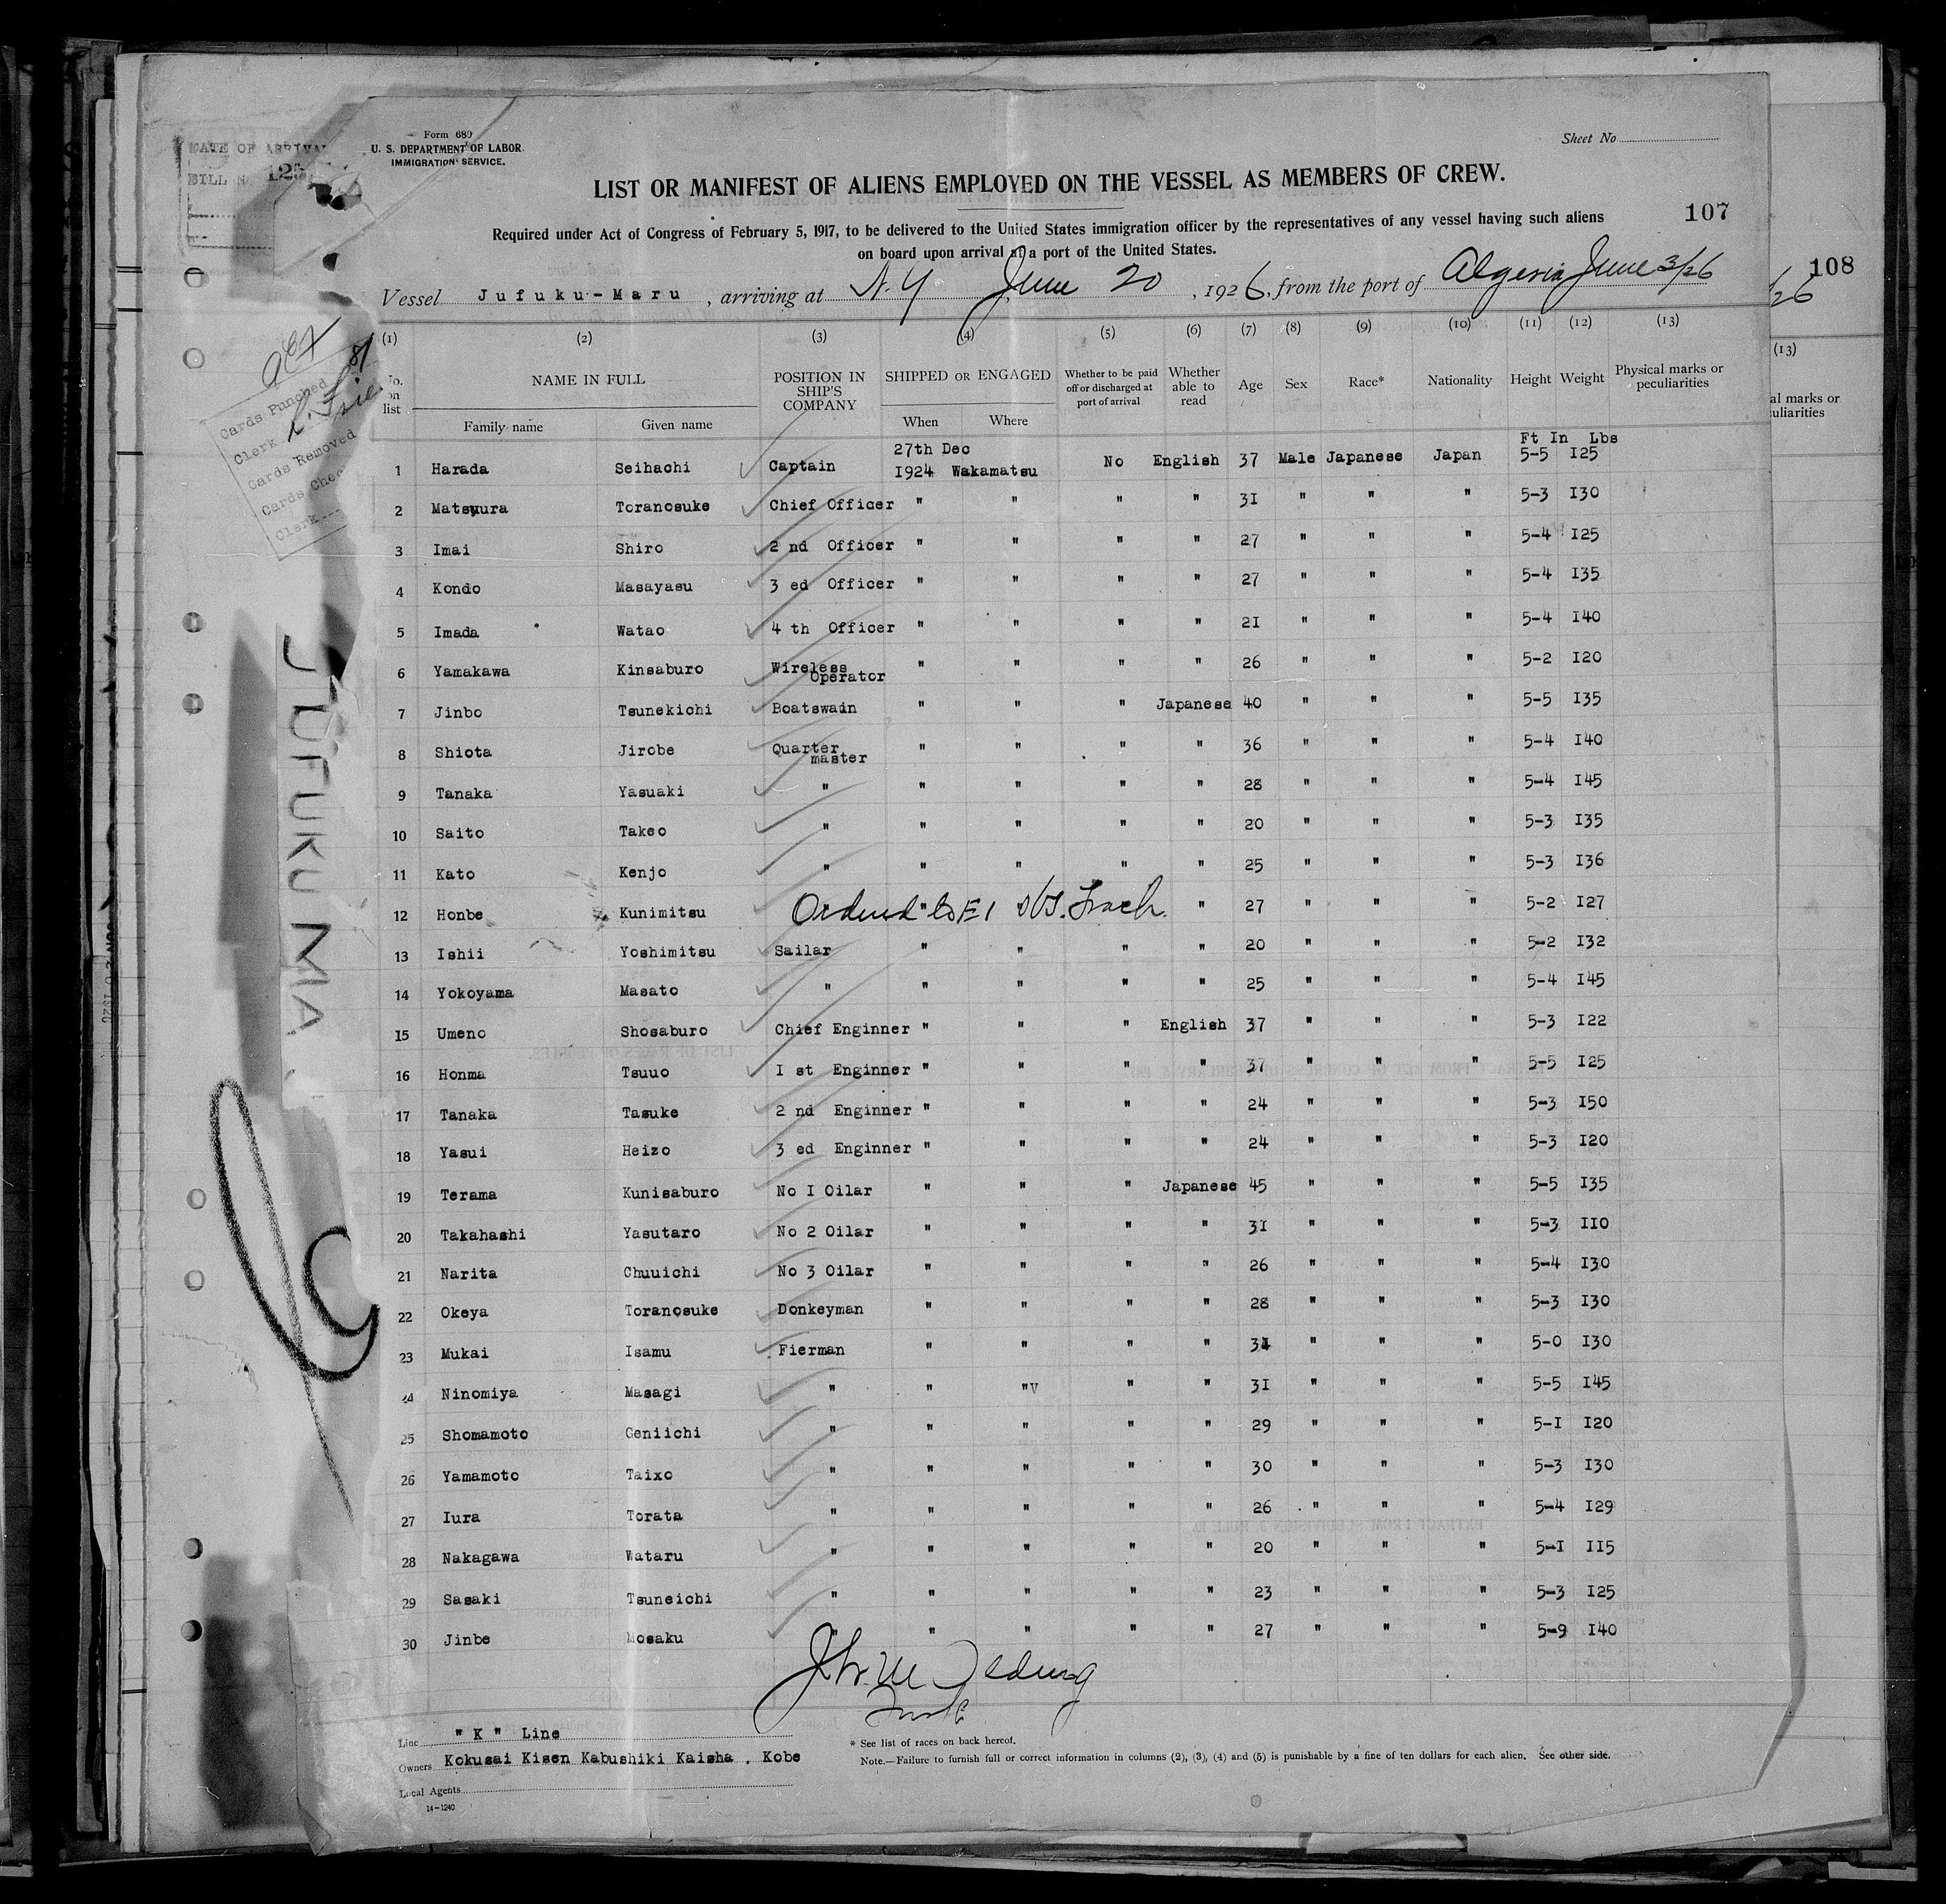 DATE OF ARRIVAL
BILL N 125
Form 680
U. S. DEPARTMENT OF LABOR
IMMIGRATION SERVICE.
Sheet No
LIST OR MANIFEST OF ALIENS EMPLOYED ON THE VESSEL AS MEMBERS OF CREW.
107
Required under Act of Congress of February 5, 1917, to be delivered to the United States immigration officer by the representatives of any vessel having such aliens
on board upon arrival at a port of the United States.
108
Vessel Jufuku-Maru, arriving at N.Y June 20, 1926, from the port of Algeria June 3/26
/26
(1) (2) (3) (4) (5) (6) (7) (8) (9) (10) (11) (12) (13)
(13)
No. on list NAME IN FULL POSITION IN SHIP'S COMPANY SHIPPED OR ENGAGED Whether to be paid off or discharged at port of arrival Whether able to read Age Sex Race* Nationality Height Weight Physical marks or peculiarities
al marks or
uliarities
Family name Given name When Where
Cards Punched
Clerk
Cards Removed
Cards Chec
Clerk
JUFUKU MA
Ft In Lbs
1 Harada Seihachi Captain 27th Dec 1924 Wakamatsu No English 37 Male Japanese Japan 5-5 I25
2 Matsuura Toranosuke Chief Officer " " " " 3I " " " 5-3 I30
3 Imai Shiro 2 nd Officer " " " " 27 " " " 5-4 I25
4 Kondo Masayasu 3 ed Officer " " " " 27 " " " 5-4 I35
5 Imada Watao 4 th Officer " " " " 2I " " " 5-4 I40
6 Yamakawa Kinsaburo Wireless Operator " " " " 26 " " " 5-2 I20
7 Jinbo Tsunekichi Boatswain " " " Japanese 40 " " " 5-5 I35
8 Shiota Jirobe Quarter master " " " " 36 " " " 5-4 I40
9 Tanaka Yasuaki " " " " " 28 " " " 5-4 I45
10 Saito Takeo " " " " " 20 " " " 5-3 I35
11 Kato Kenjo " " " " " 25 " " " 5-3 I36
12 Honbe Kunimitsu " " 27 " " " 5-2 I27
13 Ishii Yoshimitsu Sailar " " " " 20 " " " 5-2 I32
14 Yokoyama Masato " " " " " 25 " " " 5-4 I45
15 Umeno Shosaburo Chief Enginner " " " English 37 " " " 5-3 I22
16 Honma Tsuuo I st Enginner " " " " 37 " " " 5-5 I25
17 Tanaka Tasuke 2 nd Enginner " " " " 24 " " " 5-3 I50
18 Yasui Heizo 3 ed Enginner " " " " 24 " " " 5-3 I20
19 Terama Kunisaburo No I Oilar " " " Japanese 45 " " " 5-5 I35
20 Takahashi Yasutaro No 2 Oilar " " " " 3I " " " 5-3 II0
21 Narita Chuuichi No 3 Oilar " " " " 26 " " " 5-4 I30
22 Okeya Toranosuke Donkeyman " " " " 28 " " " 5-3 I30
23 Mukai Isamu Fierman " " " " " " " 5-0 I30
24 Ninomiya Masagi " " "V " " 3I " " " 5-5 I45
25 Shomamoto Geniichi " " " " " 29 " " " 5-I I20
26 Yamamoto Taixo " " " " " 30 " " " 5-3 I30
27 Iura Torata " " " " " 26 " " " 5-4 I29
28 Nakagawa Wataru " " " " " 20 " " " 5-I II5
29 Sasaki Tsuneichi " " " " " 23 " " " 5-3 I25
30 Jinbe Mosaku " " " " 27 " " " 5-9 I40
Line "K" Line
* See list of races on back hereof.
Owners Kokusai Kisen Kabushiki Kaisha . Kobe
Note.—Failure to furnish full or correct information in columns (2), (3), (4) and (5) is punishable by a fine of ten dollars for each alien. See other side.
Local Agents
14-1240